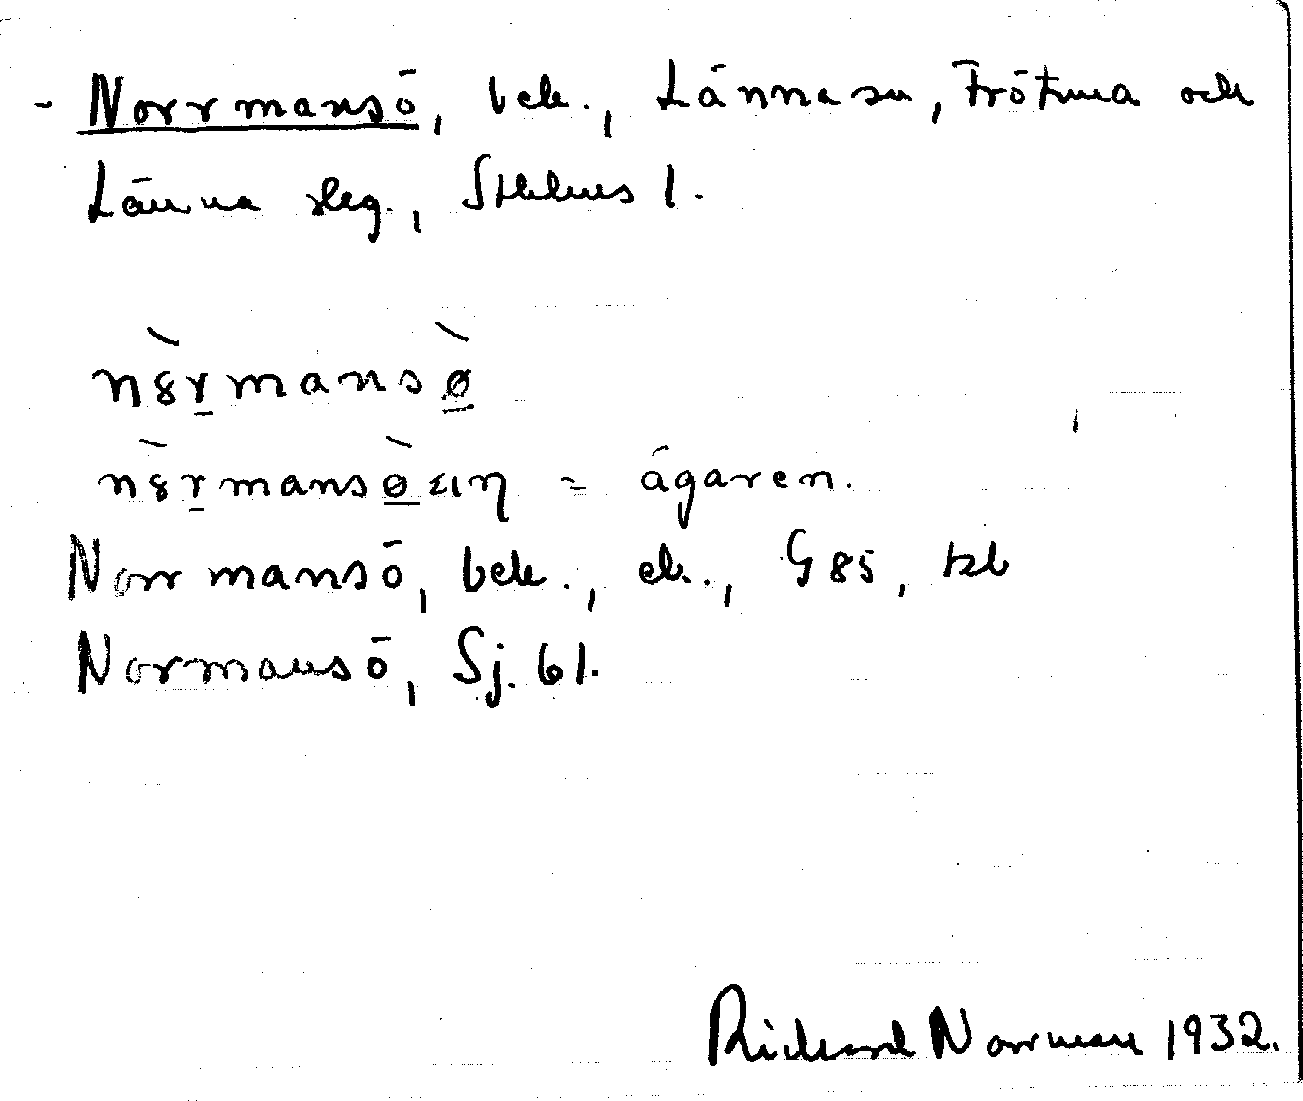 - Norrmansö, beb., Länna sn, Frötuna och
Länna skg., Sthlms l.
nȣ̀r̲mansø̲̀
nȣ̀r̲mansø̲̀ = ägaren.
Norrmansö, beb., ek., G 85, tab
Normansö, Sj. 61.
Rickard Norrman 1932.